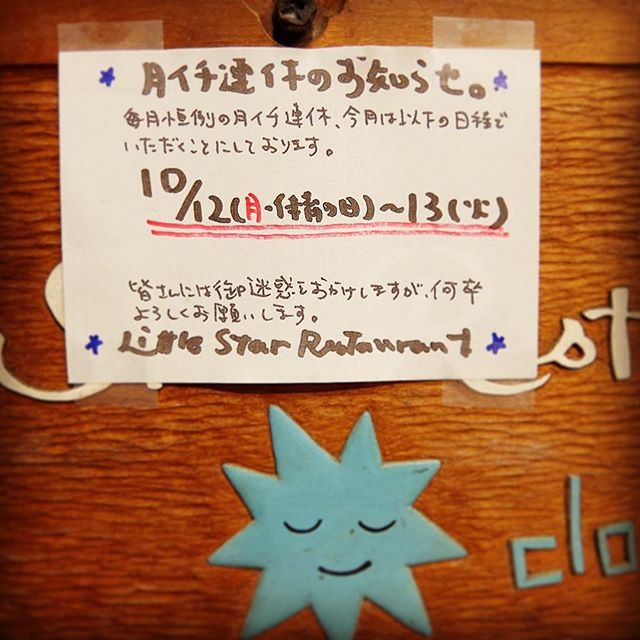 月イチ連休のお知らせ。
毎月恒例の月イチ連休、今月は以下の日程で
いただくことにしております。
10/12(月・体育の日)〜13(火)
皆さんには御迷惑をおかけしますが、何卒
よろしくお願いします。
Little Star Restaurant
st
clo